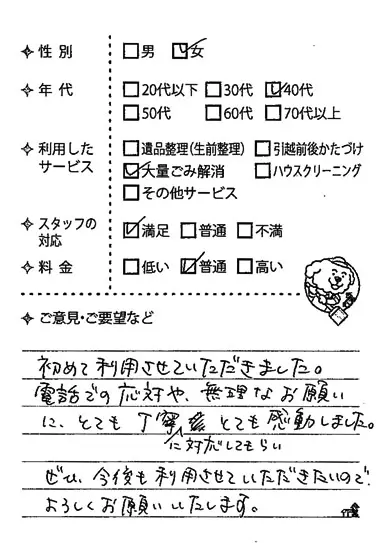 ✧ 性別 □男 ☑女
✧ 年代 □20代以下 □30代 ☑40代
□50代 □60代 □70代以上
✧ 利用したサービス □遺品整理(生前整理) □引越前後かたづけ
☑大量ごみ解消 □ハウスクリーニング
□その他サービス
✧ スタッフの対応 ☑満足 □普通 □不満
✧ 料金 □低い ☑普通 □高い
✧ ご意見・ご要望など
初めて利用させていただきました。
電話での応対や、無理なお願い
に、とても丁寧に対応してもらい とても感動しました。
ぜひ、今後も利用させていただきたいので
よろしくお願いいたします。